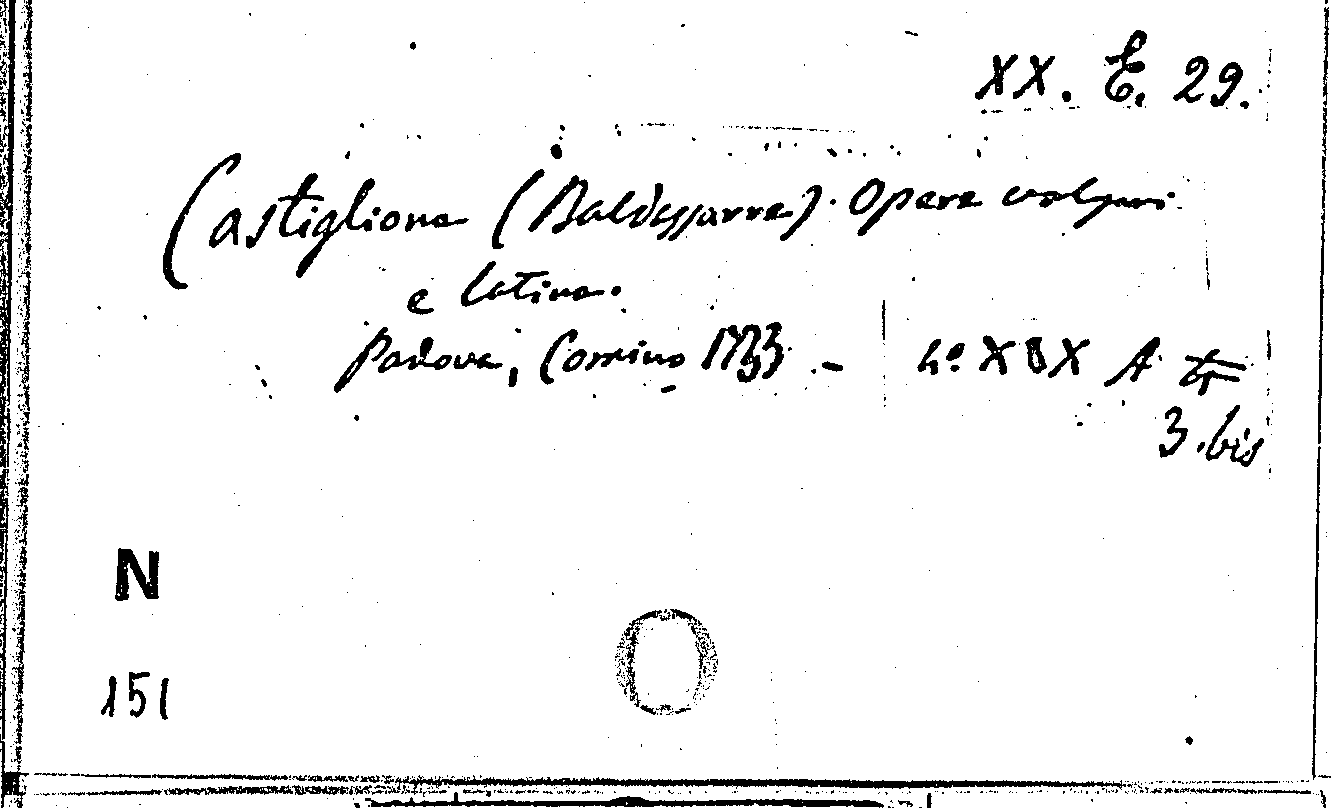 XX. E. 29.
Castiglione (Baldessarre). Opere volgari
e latine.
Padova, Comino 1733 - 4º. XIX A
3. bis
N
151